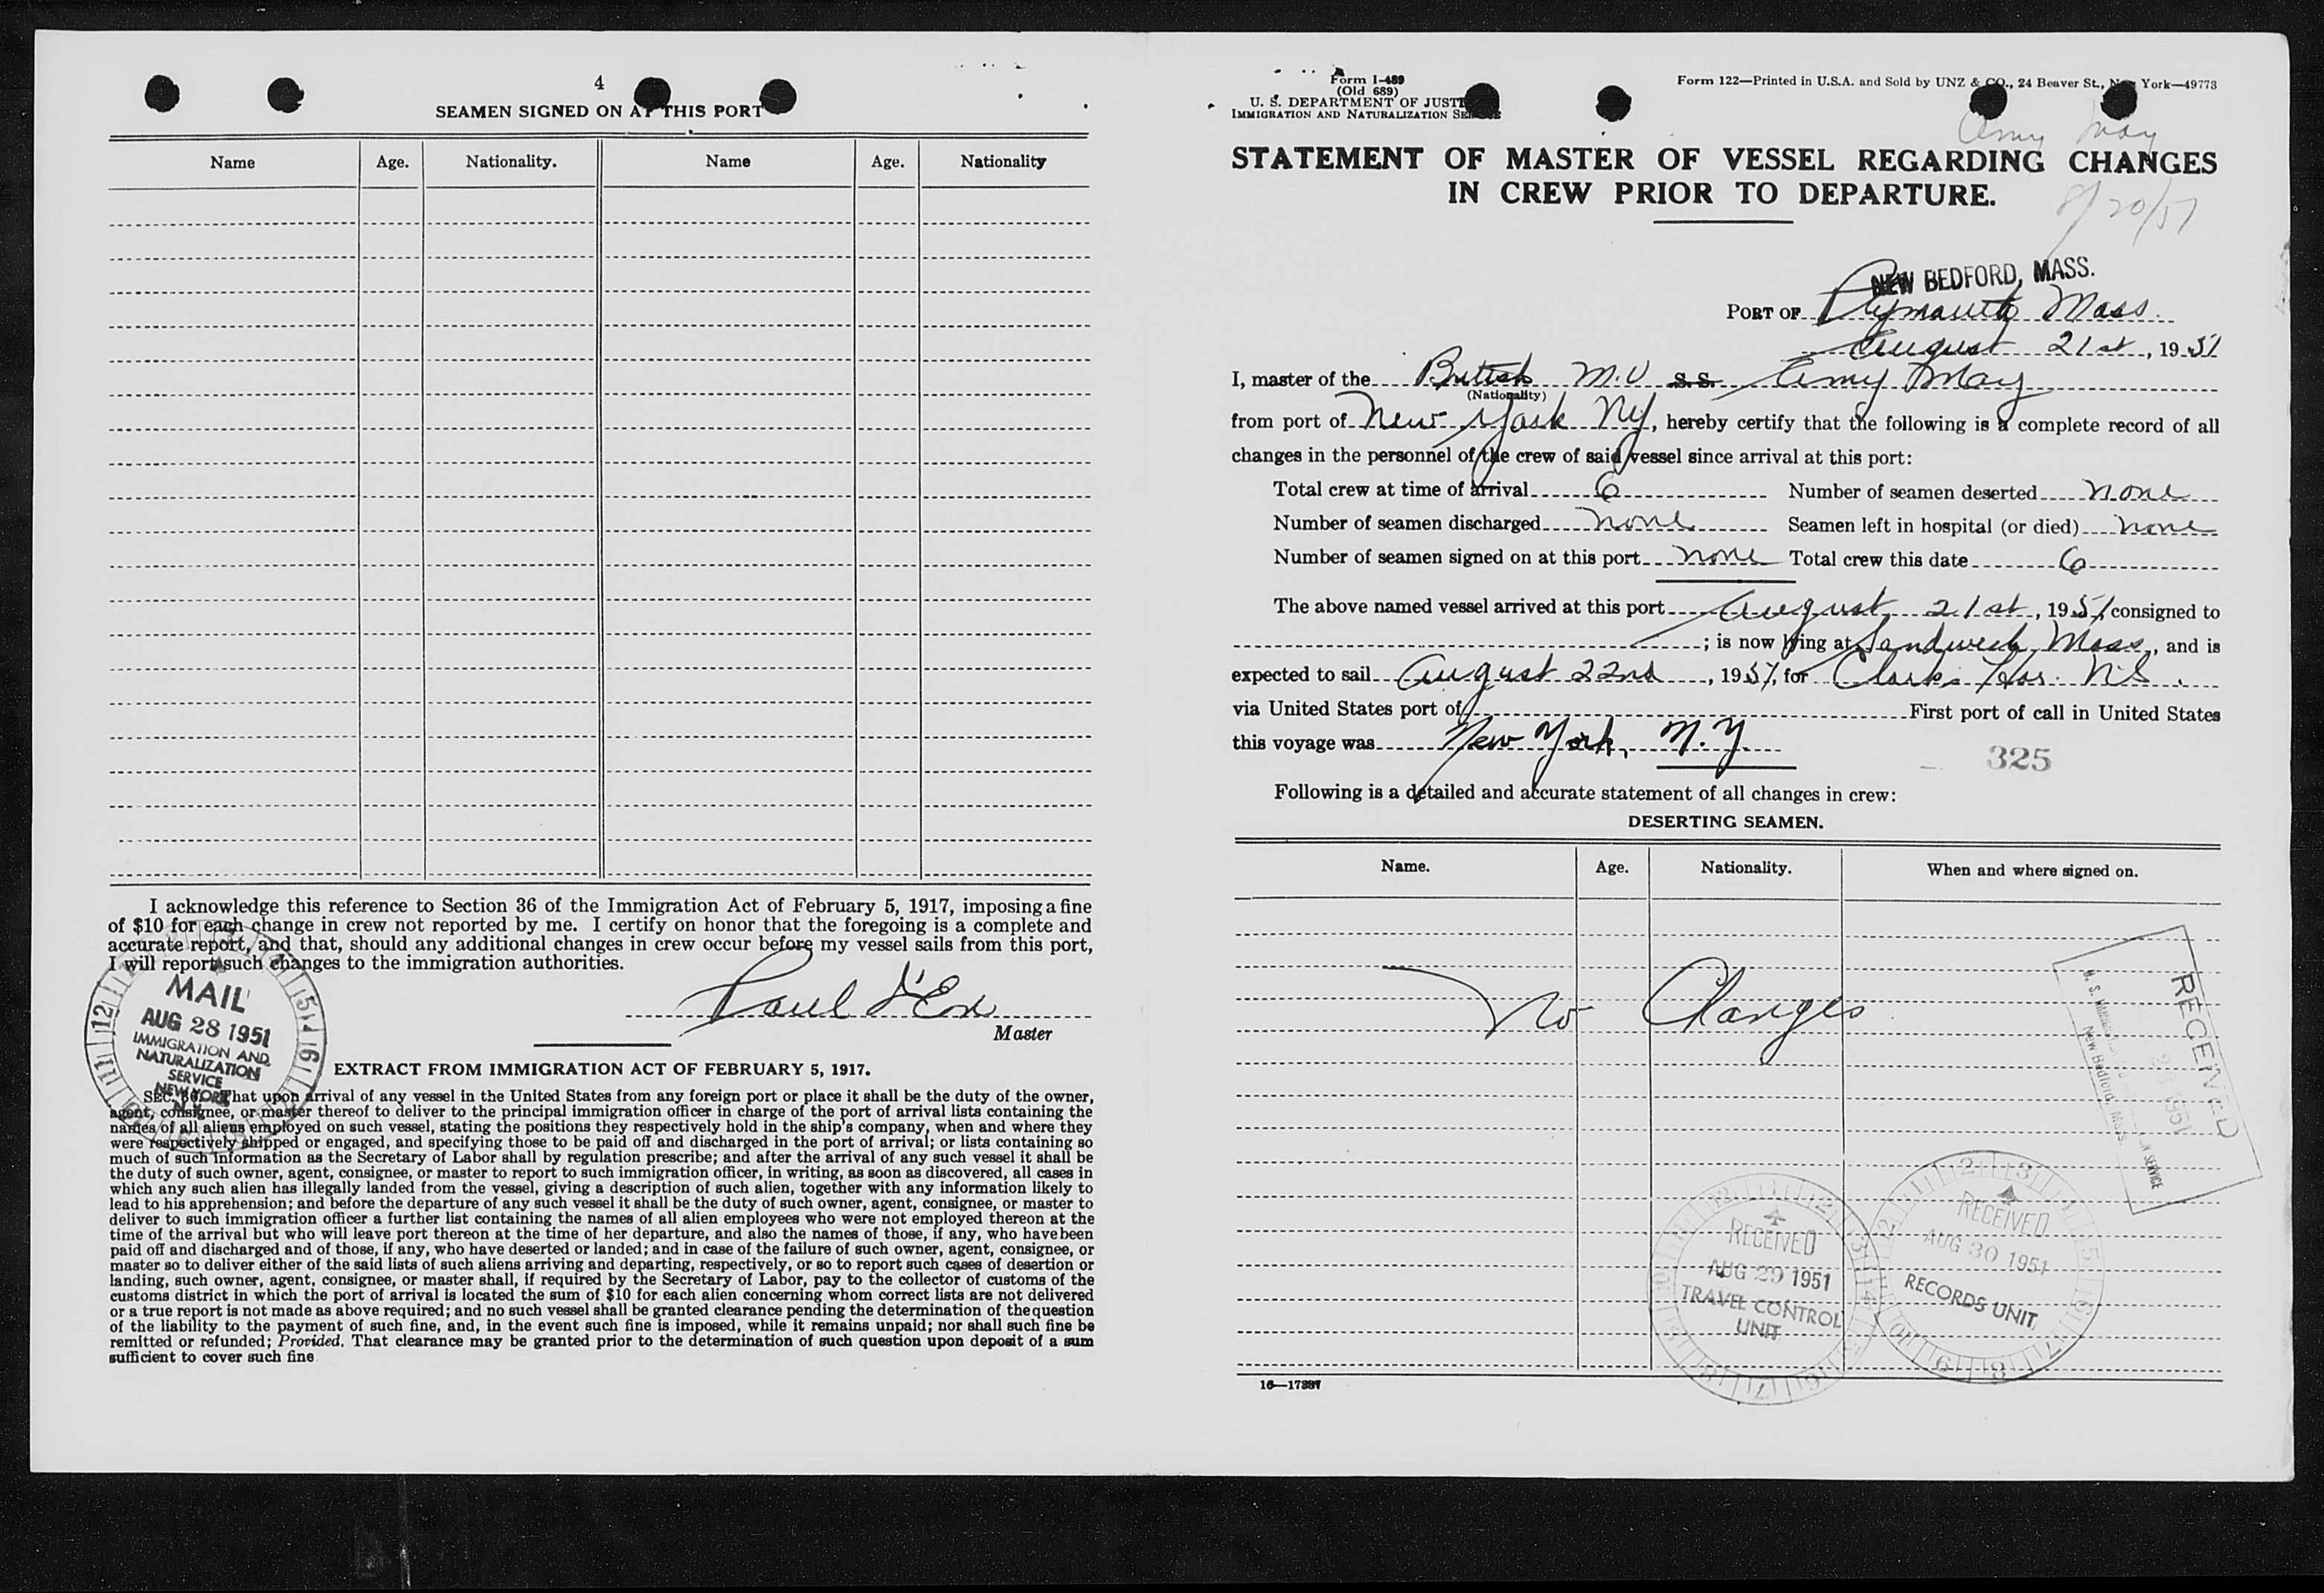 4
SEAMEN SIGNED ON AT THIS PORT
Name Age. Nationality. Name Age. Nationality
I acknowledge this reference to Section 36 of the Immigration Act of February 5, 1917, imposing a fine
of $10 for each change in crew not reported by me. I certify on honor that the foregoing is a complete and
accurate report, and that, should any additional changes in crew occur before my vessel sails from this port,
I will report such changes to the immigration authorities.
MAIL
AUG 28 1951
IMMIGRATION AND
NATURALIZATION
SERVICE
NEW YORK
Paul
Master
EXTRACT FROM IMMIGRATION ACT OF FEBRUARY 5, 1917.
SEC. 36. That upon arrival of any vessel in the United States from any foreign port or place it shall be the duty of the owner,
agent, consignee, or master thereof to deliver to the principal immigration officer in charge of the port of arrival lists containing the
names of all aliens employed on such vessel, stating the positions they respectively hold in the ship's company, when and where they
were respectively shipped or engaged, and specifying those to be paid off and discharged in the port of arrival; or lists containing so
much of such information as the Secretary of Labor shall by regulation prescribe; and after the arrival of any such vessel it shall be
the duty of such owner, agent, consignee, or master to report to such immigration officer, in writing, as soon as discovered, all cases in
which any such alien has illegally landed from the vessel, giving a description of such alien, together with any information likely to
lead to his apprehension; and before the departure of any such vessel it shall be the duty of such owner, agent, consignee, or master to
deliver to such immigration officer a further list containing the names of all alien employees who were not employed thereon at the
time of the arrival but who will leave port thereon at the time of her departure, and also the names of those, if any, who have been
paid off and discharged and of those, if any, who have deserted or landed; and in case of the failure of such owner, agent, consignee, or
master so to deliver either of the said lists of such aliens arriving and departing, respectively, or so to report such cases of desertion or
landing, such owner, agent, consignee, or master shall, if required by the Secretary of Labor, pay to the collector of customs of the
customs district in which the port of arrival is located the sum of $10 for each alien concerning whom correct lists are not delivered
or a true report is not made as above required; and no such vessel shall be granted clearance pending the determination of the question
of the liability to the payment of such fine, and, in the event such fine is imposed, while it remains unpaid; nor shall such fine be
remitted or refunded; Provided, That clearance may be granted prior to the determination of such question upon deposit of a sum
sufficient to cover such fine
Form I-489
(Old 689)
U. S. DEPARTMENT OF JUSTICE
IMMIGRATION AND NATURALIZATION SERVICE
Form 122—Printed in U.S.A. and Sold by UNZ & CO., 24 Beaver St., New York—49773
Amy May
STATEMENT OF MASTER OF VESSEL REGARDING CHANGES
IN CREW PRIOR TO DEPARTURE.
8/20/51
NEW BEDFORD, MASS.
PORT OF Plymouth Mass.
August 21st, 1951
I, master of the British M.V S.S. Amy May
(Nationality)
from port of New York NY, hereby certify that the following is a complete record of all
changes in the personnel of the crew of said vessel since arrival at this port:
Total crew at time of arrival 6 Number of seamen deserted none
Number of seamen discharged none Seamen left in hospital (or died) none
Number of seamen signed on at this port none Total crew this date 6
The above named vessel arrived at this port August 21st, 1951 consigned to
; is now lying at Sandwich Mass, and is
expected to sail August 22nd, 1951, for Clarks Har. N.S.
via United States port of First port of call in United States
this voyage was New York, N.Y.
325
Following is a detailed and accurate statement of all changes in crew:
DESERTING SEAMEN.
Name. Age. Nationality. When and where signed on.
No Changes
RECEIVED
1951
New Bedford, Mass.
RECEIVED
AUG 29 1951
TRAVEL CONTROL
UNIT
RECEIVED
AUG 30 1951
RECORDS UNIT